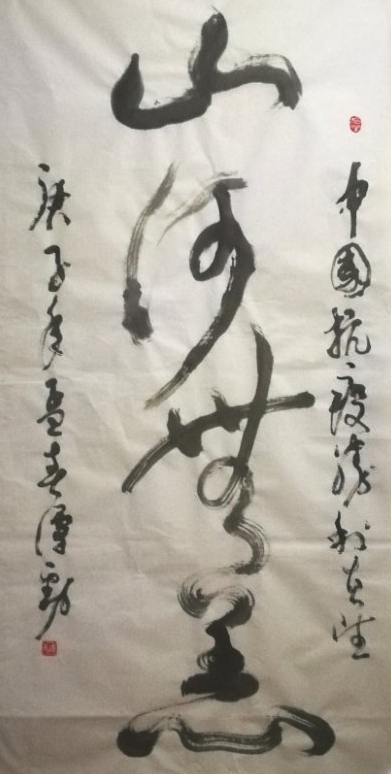 中国抗疫胜利在望
山河无恙
庚子年孟春谭勁